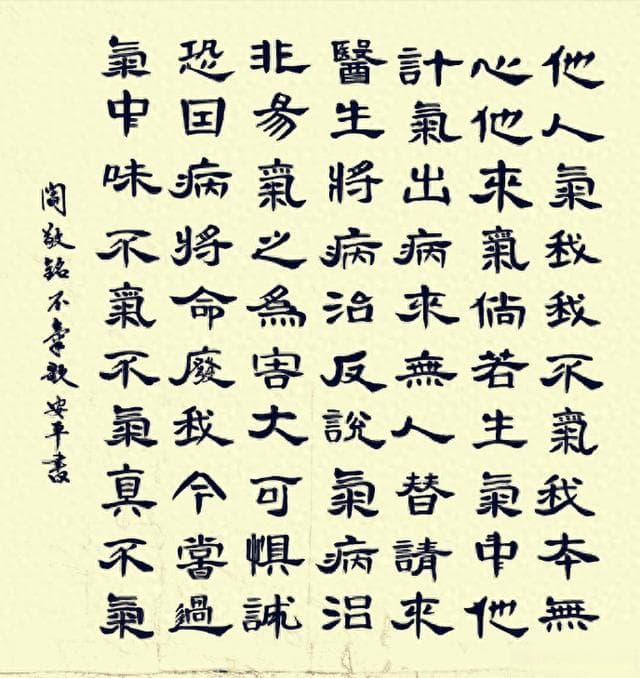 他人氣我我不氣我本無
心他來氣倘若生氣中他
計氣出病來無人替請來
醫生將病治反說氣病治
非易氣之為害大可懼誠
恐因病將命廢我今嘗過
氣中味不氣不氣真不氣
閻敬銘不氣歌安平書